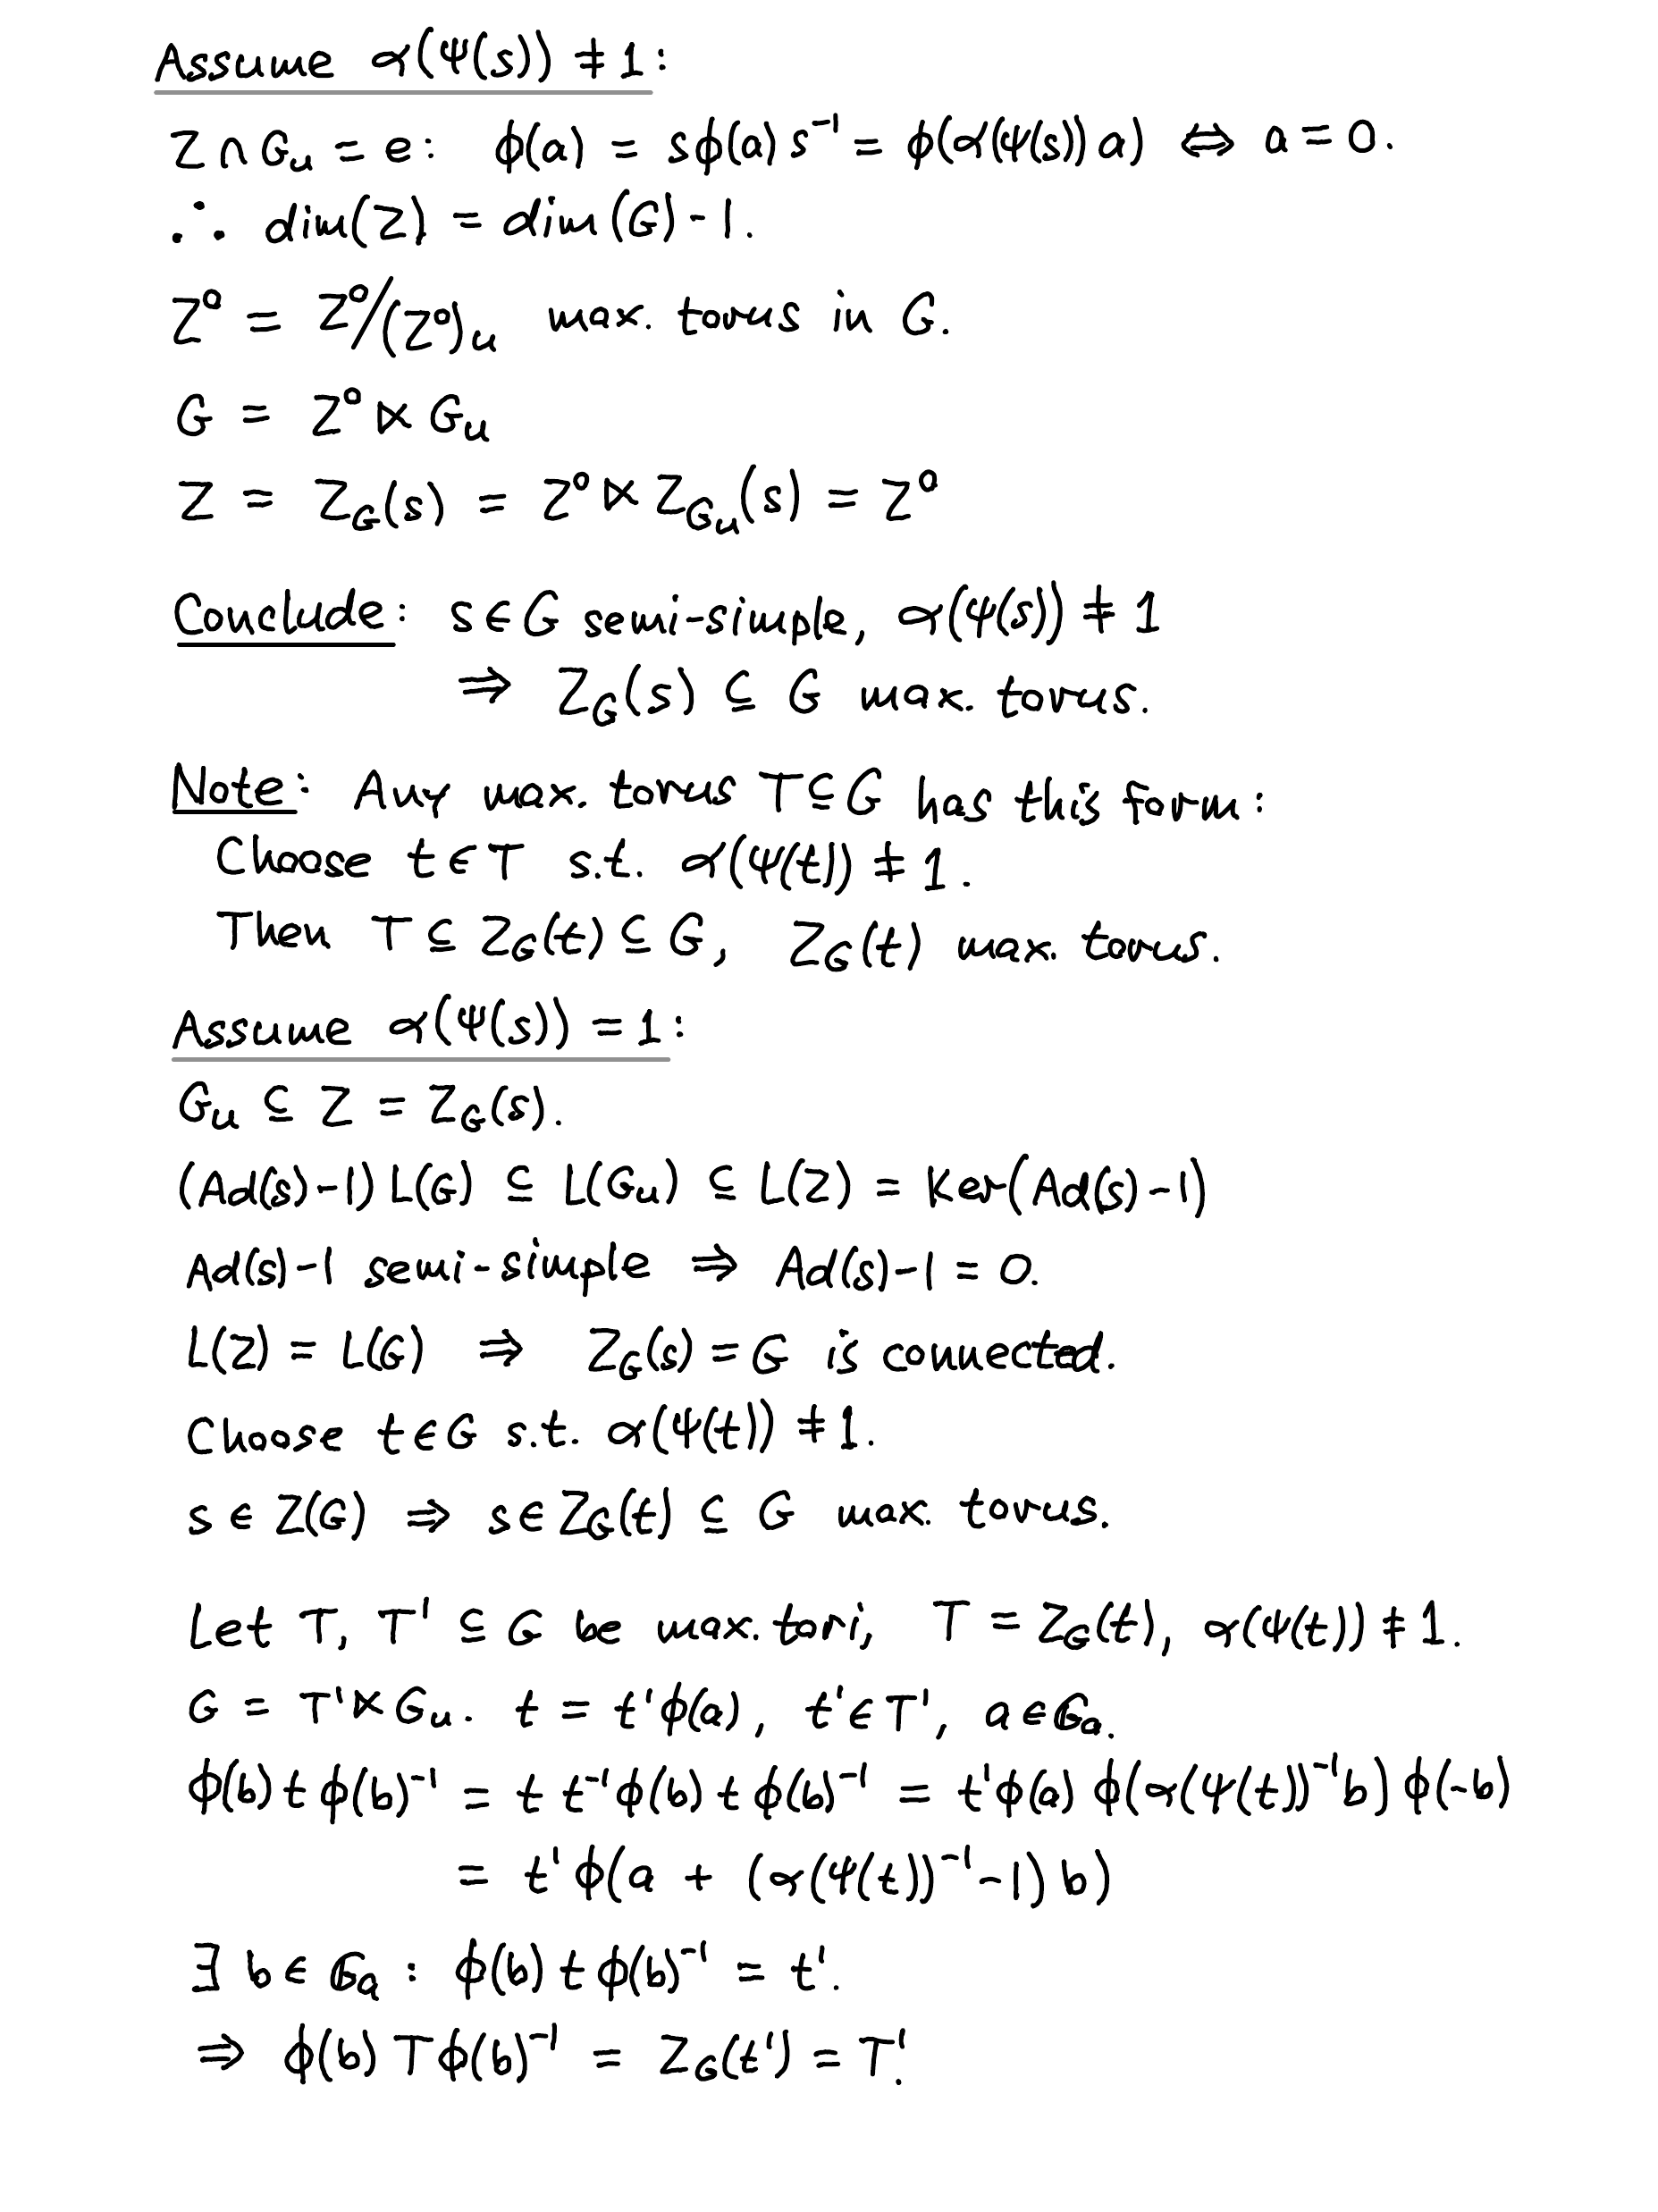 Assume α(Ψ(s)) ≠ 1:
Z ∩ Gᵤ = e: ϕ(a) = sϕ(a)s⁻¹ = ϕ(α(Ψ(s))a) ⇔ a = 0.
∴ dim(Z) = dim(G) - 1.
Z⁰ = Z⁰/(Z⁰)ᵤ max. torus in G.
G = Z⁰ ⋉ Gᵤ
Z = Z_G(s) = Z⁰ ⋉ Z_{Gᵤ}(s) = Z⁰
Conclude: s ∈ G semi-simple, α(Ψ(s)) ≠ 1
⇒ Z_G(s) ⊆ G max. torus.
Note: Any max. torus T ⊆ G has this form:
Choose t ∈ T s.t. α(Ψ(t)) ≠ 1.
Then T ⊆ Z_G(t) ⊆ G, Z_G(t) max. torus.
Assume α(Ψ(s)) = 1:
Gᵤ ⊆ Z = Z_G(s).
(Ad(s)-1) L(G) ⊆ L(Gᵤ) ⊆ L(Z) = Ker(Ad(s)-1)
Ad(s)-1 semi-simple ⇒ Ad(s)-1 = 0.
L(Z) = L(G) ⇒ Z_G(s) = G is connected.
Choose t ∈ G s.t. α(Ψ(t)) ≠ 1.
s ∈ Z(G) ⇒ s ∈ Z_G(t) ⊆ G max. torus.
Let T, T' ⊆ G be max. tori, T = Z_G(t), α(Ψ(t)) ≠ 1.
G = T' ⋉ Gᵤ. t = t'ϕ(a), t' ∈ T', a ∈ 𝔾ₐ.
ϕ(b) t ϕ(b)⁻¹ = t t⁻¹ϕ(b) t ϕ(b)⁻¹ = t'ϕ(a) ϕ(α(Ψ(t))⁻¹b) ϕ(-b)
= t'ϕ(a + (α(Ψ(t))⁻¹-1) b)
∃ b ∈ 𝔾ₐ : ϕ(b) t ϕ(b)⁻¹ = t'.
⇒ ϕ(b) T ϕ(b)⁻¹ = Z_G(t') = T'.